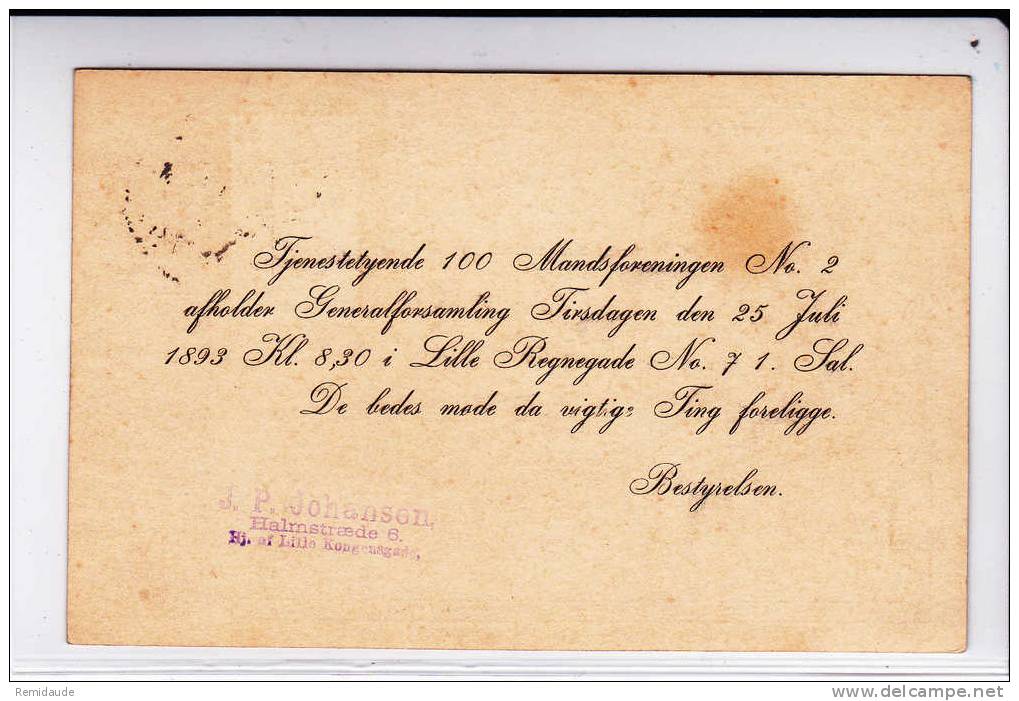 Tjenestetyende 100 Mandsforeningen No. 2
afholder Generalforsamling Tirsdagen den 25 Juli
1893 Kl. 8,30 i Lille Regnegade No. 7 1. Sal.
De bedes møde da vigtige Ting foreligge.
Bestyrelsen.
J. P. Johansen,
Halmstræde 6.
Hj. af Lille Kongensgade,
Remidaude
www.delcampe.net